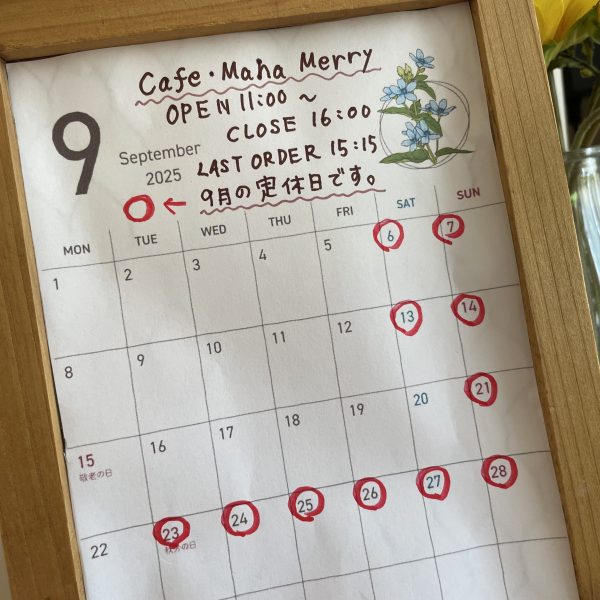 Cafe・Maha Merry
OPEN 11:00 ~
CLOSE 16:00
LAST ORDER 15:15
9月の定休日です。
9
September
2025
MON TUE WED THU FRI SAT SUN
1 2 3 4 5 6 7
8 9 10 11 12 13 14
15 16 17 18 19 20 21
敬老の日
22 23 24 25 26 27 28
秋分の日